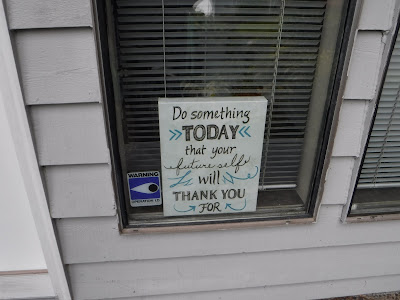 Do something
TODAY
that your
future self
will
THANK YOU
FOR
WARNING
OPERATION ID